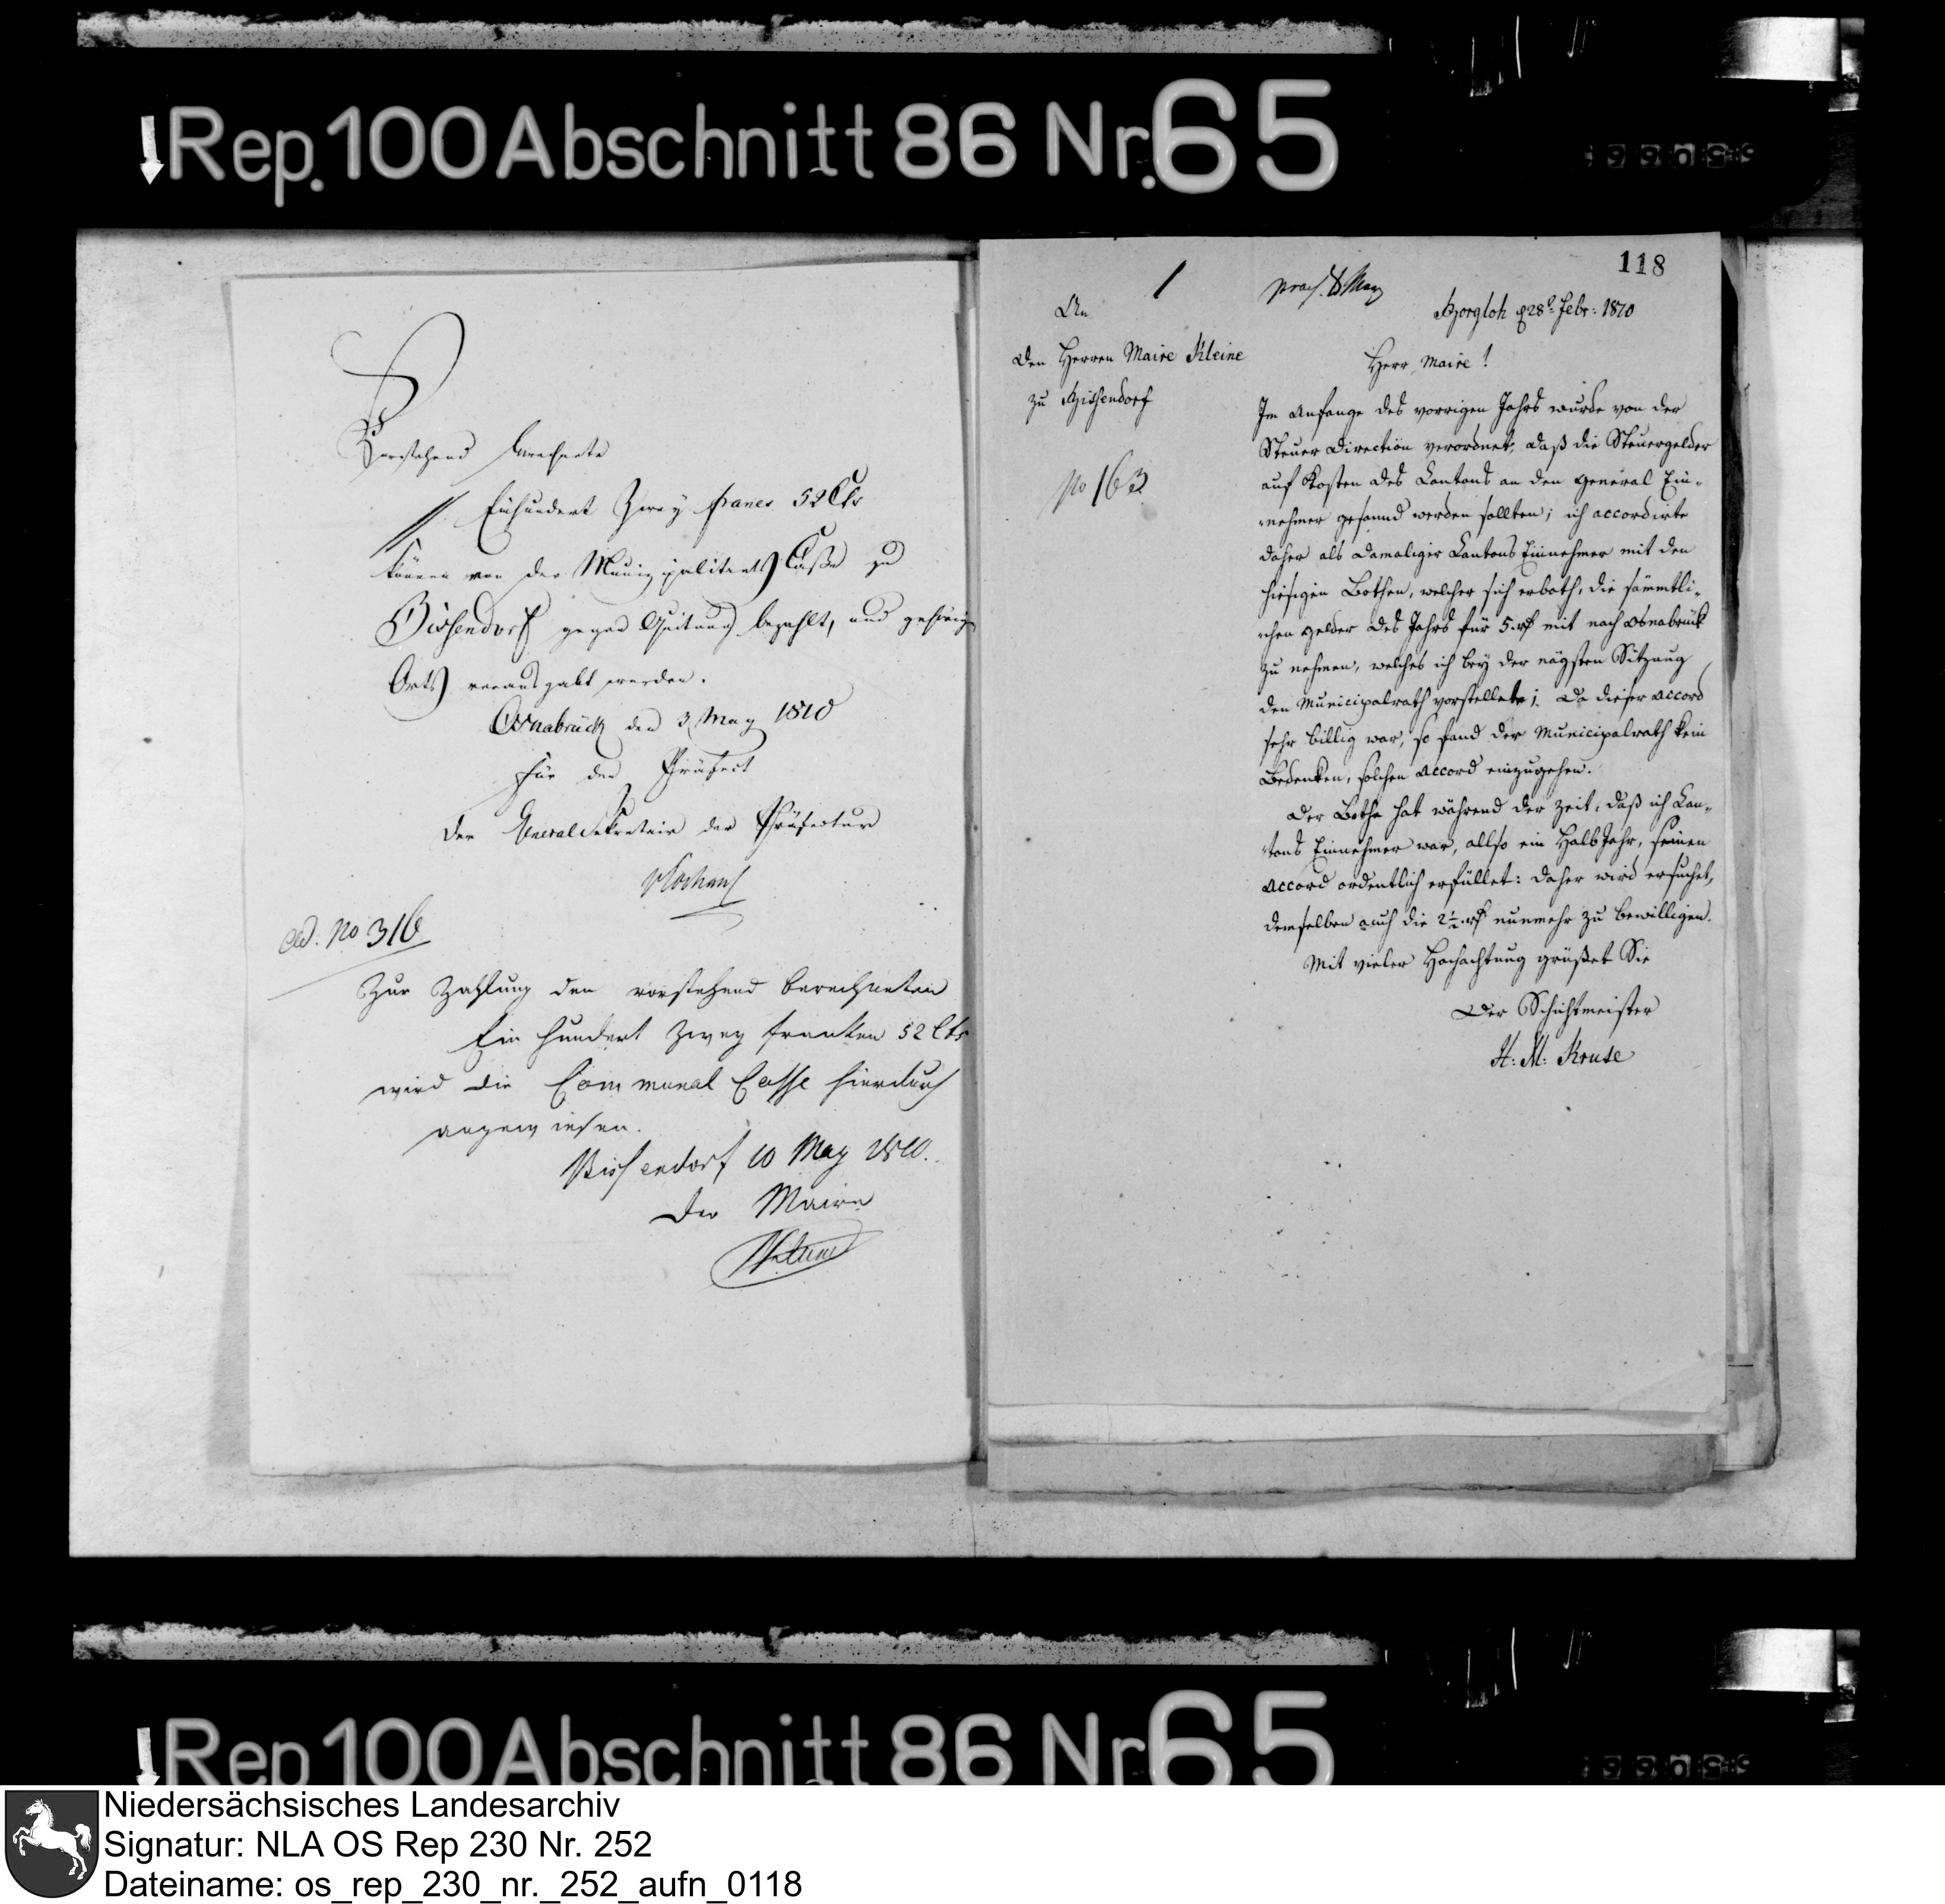 Rep. 100 Abschnitt 86 Nr. 65
Vorstehend berechnete
Einhundert Zwey francs 52 Cts
können von der Municipalitaets Casse zu
Bissendorf gegen Quitung bezahlt, und gehörig
Orts verausgabt werden.
Osnabrück den 3 May 1810
Für den Präfect
Der General Sekretair der Präfectur
ad. No 316
Zur Zahlung den vorstehend berechneten
Ein hundert zwey franken 52 Cts
wird die Communal Casse hierdurch
angewiesen.
Bissendorf 10 May 1810.
Der Maire
118
praes. 8 May
An
den Herren Maire Kleine
zu Bissendorf
No 163
Borgloh d 28t Febr: 1810
Herr Maire!
Im Anfange des vorrigen Jahrs wurde von der
Steuer Direction verordnet, daß die Steuergelder
auf Kosten des Cantons an den General Ein-
nehmer gesannd werden sollten; ich accordirte
daher als damaliger Cantons Einnehmer mit den
hiesigen Bothen, welcher sich erboth, die sämmtli-
chen Gelder des Jahrs für 5 rt mit nach Osnabrück
zu nehmen, welches ich bey der nägsten Sitzung
den Municipalrath vorstellete; Da dieser Accord
sehr billig war, so fand der Municipalrath kein
Bedenken, solchen Accord einzugehen.
Der Bothe hat während der Zeit, daß ich Can-
tons Einnehmer war, allso ein Halb Jahr, seinen
Accord ordentlich erfüllet: daher wird ersuchet,
demselben auch die 2½ rt nunmehr zu bewilligen.
Mit vieler Hochachtung grüßet Sie
Der Schichtmeister
H: M: Kruse
Rep 100 Abschnitt 86 Nr 65
Niedersächsisches Landesarchiv
Signatur: NLA OS Rep 230 Nr. 252
Dateiname: os_rep_230_nr._252_aufn_0118